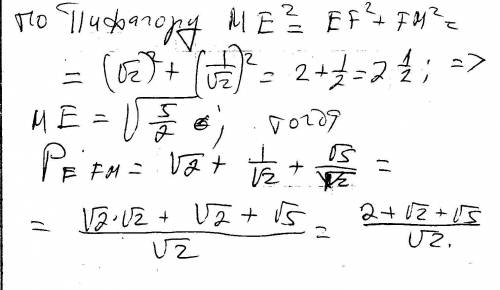 по Пифагору ME² = EF² + FM² =
= (√2)² + (1/√2)² = 2 + 1/2 = 2 1/2; =>
ME = √(5/2); тогда
P_EFM = √2 + 1/√2 + √5/√2 =
= (√2·√2 + √2 + √5)/√2 = (2 + √2 + √5)/√2.